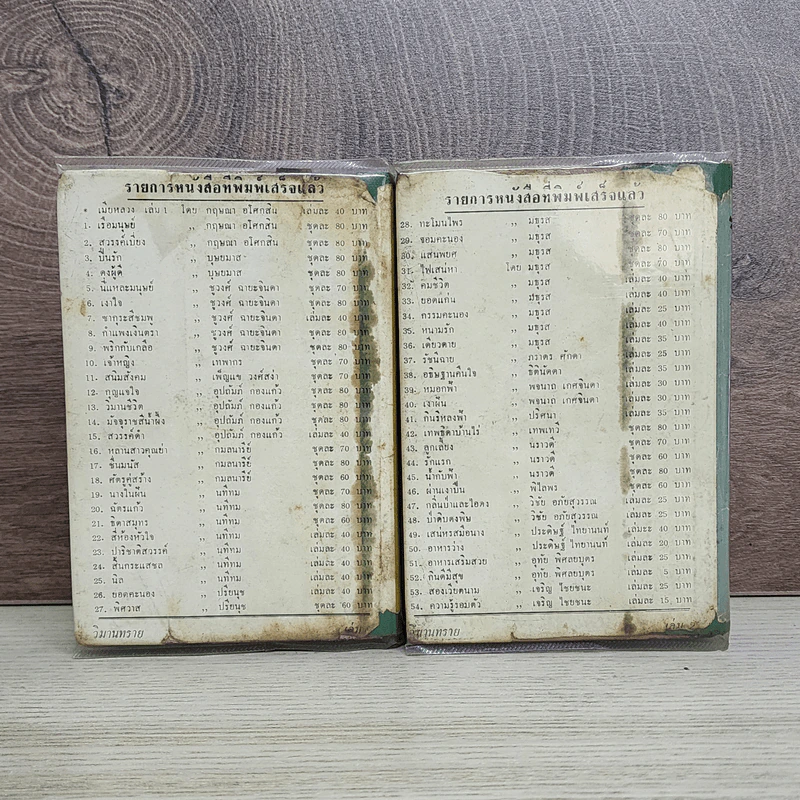 รายการหนังสือที่พิมพ์เสร็จแล้ว
* เมียหลวง เล่ม 1 โดย กฤษณา อโศกสิน เล่มละ 40 บาท
1. เรือมนุษย์ ,, กฤษณา อโศกสิน ชุดละ 80 บาท
2. สวรรค์เบี่ยง ,, กฤษณา อโศกสิน ชุดละ 80 บาท
3. ปิ่นรัก ,, บุษยมาส ชุดละ 80 บาท
4. ดงผู้ดี ,, บุษยมาส ชุดละ 80 บาท
5. นี่แหละมนุษย์ ,, ชูวงศ์ ฉายะจินดา ชุดละ 70 บาท
6. เงาใจ ,, ชูวงศ์ ฉายะจินดา ชุดละ 80 บาท
7. ซากุระสีชมพู ,, ชูวงศ์ ฉายะจินดา เล่มละ 40 บาท
8. กำแพงเงินตรา ,, ชูวงศ์ ฉายะจินดา ชุดละ 80 บาท
9. พริกกับเกลือ ,, ชูวงศ์ ฉายะจินดา ชุดละ 80 บาท
10. เจ้าหญิง ,, เทพากร ชุดละ 70 บาท
11. สนิมสังคม ,, เพ็ญแข วงศ์สง่า ชุดละ 70 บาท
12. กุญแจใจ ,, อุปถัมภ์ กองแก้ว ชุดละ 80 บาท
13. วิมานชีวิต ,, อุปถัมภ์ กองแก้ว ชุดละ 80 บาท
14. มัจจุราชสีน้ำผึ้ง ,, อุปถัมภ์ กองแก้ว ชุดละ 80 บาท
15. สวรรค์ดำ ,, อุปถัมภ์ กองแก้ว เล่มละ 40 บาท
16. หลานสาวคุณย่า ,, กมลนารีย์ ชุดละ 70 บาท
17. ชื่นมนัส ,, กมลนารีย์ ชุดละ 80 บาท
18. ศัตรูคู่สร้าง ,, กมลนารีย์ ชุดละ 80 บาท
19. นางในฝัน ,, นทีทม ชุดละ 70 บาท
20. ฉัตรแก้ว ,, นทีทม ชุดละ 80 บาท
21. ธิดาสมุทร ,, นทีทม ชุดละ 60 บาท
22. สี่ห้องหัวใจ ,, นทีทม เล่มละ 40 บาท
23. ปาริชาตสวรรค์ ,, นทีทม เล่มละ 40 บาท
24. สิ้นกระแสชล ,, นทีทม เล่มละ 40 บาท
25. นิล ,, นทีทม เล่มละ 40 บาท
26. ยอดคะนอง ,, ปรียนุช เล่มละ 40 บาท
27. พิศวาส ,, ปรียนุช ชุดละ 60 บาท
วิมานทราย
รายการหนังสือที่พิมพ์เสร็จแล้ว
28. ทะโมนไพร ,, มธุรส ชุดละ 80 บาท
29. จอมคะนอง ,, มธุรส ชุดละ 70 บาท
30. แสนพยศ ,, มธุรส ชุดละ 80 บาท
31. ไฟเสน่หา โดย มธุรส ชุดละ 70 บาท
32. คมชีวิต ,, มธุรส เล่มละ 40 บาท
33. ยอดแก่น ,, มธุรส เล่มละ 40 บาท
34. กรรมคะนอง ,, มธุรส เล่มละ 25 บาท
35. หนามรัก ,, มธุรส เล่มละ 40 บาท
36. เดียวดาย ,, มธุรส เล่มละ 35 บาท
37. รัชนีฉาย ,, ภราดร ศักดา เล่มละ 25 บาท
38. อธิษฐานคืนใจ ,, ธิตินัดดา เล่มละ 35 บาท
39. หมอกฟ้า ,, พจนาถ เกศจินดา เล่มละ 30 บาท
40. เงาฝัน ,, พจนาถ เกศจินดา เล่มละ 30 บาท
41. กินรีหลงฟ้า ,, ปริศนา เล่มละ 35 บาท
42. เทพธิดาบ้านไร่ ,, เทพเทวี ชุดละ 80 บาท
43. ลูกเลี้ยง ,, นราวดี ชุดละ 70 บาท
44. รักแรก ,, นราวดี เล่มละ 40 บาท
45. น้ำกับฟ้า ,, นราวดี ชุดละ 80 บาท
46. ม่านเงาปืน ,, พิไลพร ชุดละ 60 บาท
47. กลิ่นป่าและไอดง ,, วิชัย อภัยสุวรรณ เล่มละ 25 บาท
48. ป่าดิบดงพิษ ,, วิชัย อภัยสุวรรณ เล่มละ 25 บาท
49. เสน่หรสมือนาง ,, ประดิษฐ์ ไทยานนท์ เล่มละ 40 บาท
50. อาหารว่าง ,, ประดิษฐ์ ไทยานนท์ เล่มละ 20 บาท
51. อาหารเสริมสวย ,, อุทัย พิศลยบุตร เล่มละ 25 บาท
52. กินดีมีสุข ,, อุทัย พิศลยบุตร เล่มละ 5 บาท
53. สองเวียดนาม ,, เจริญ ไชยชนะ เล่มละ 25 บาท
54. ความรู้รอบตัว ,, เจริญ ไชยชนะ เล่มละ 15 บาท
วิมานทราย